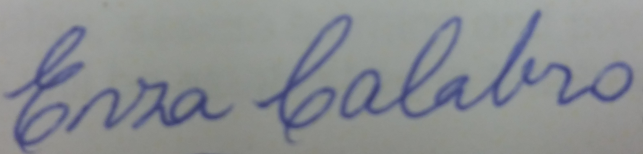 Enza Calabro